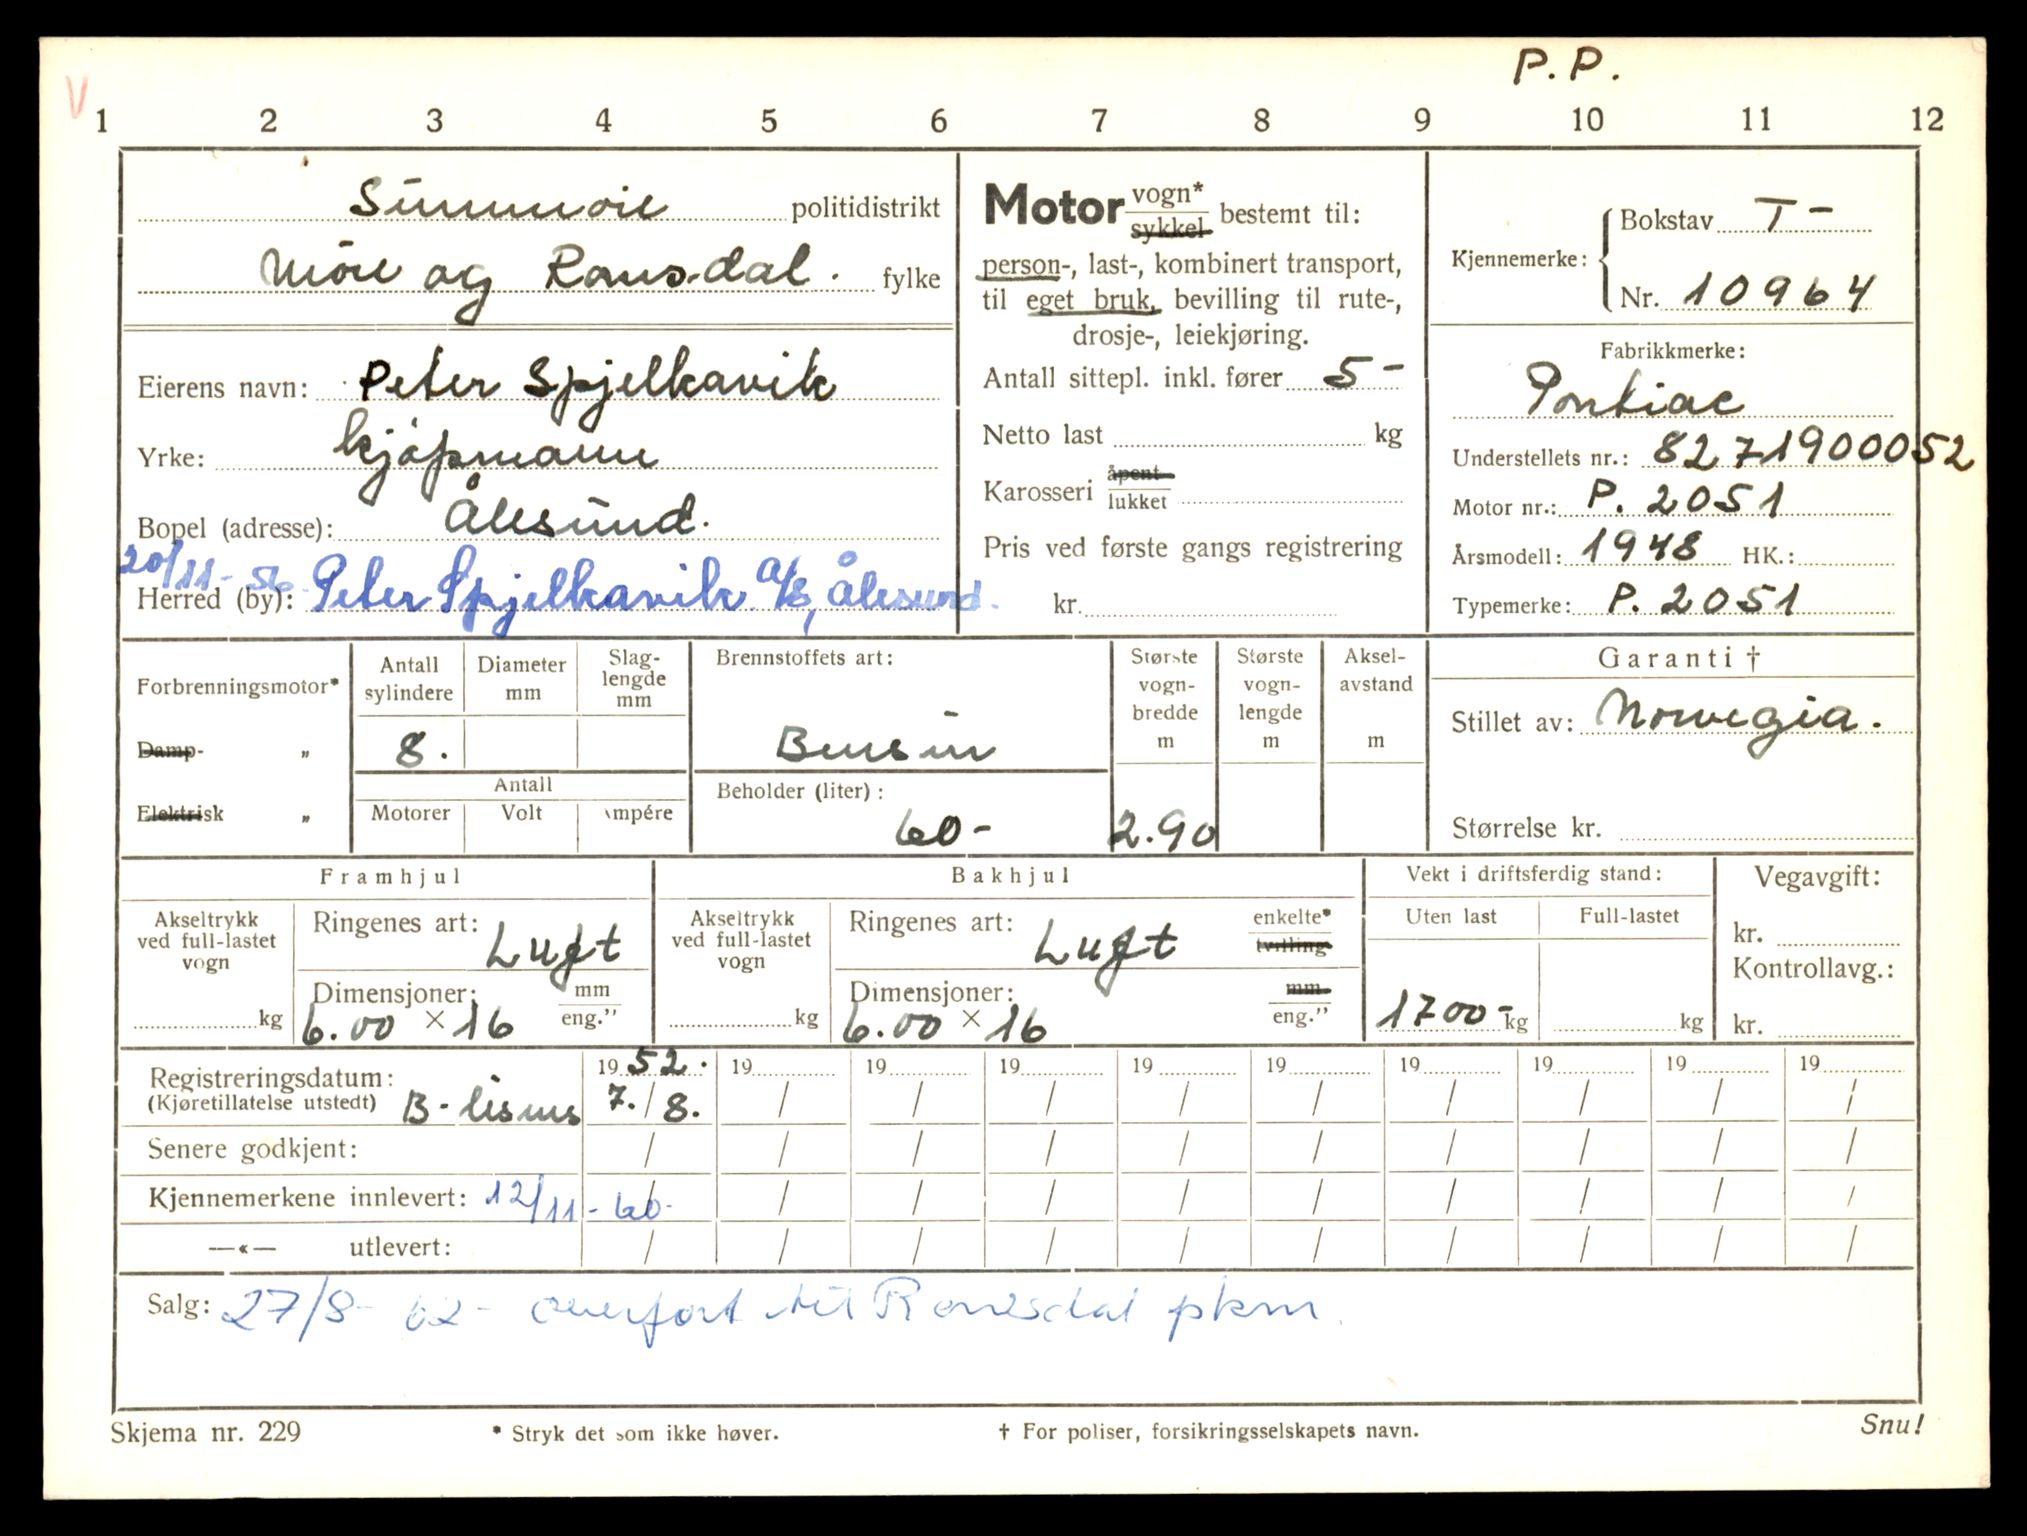 P. P.
V
1 2 3 4 5 6 7 8 9 10 11 12
Sunnmøre politidistrikt
Møre og Romsdal. fylke
Eierens navn: Peter Spjelkavik
Yrke: kjøpmann
Bopel (adresse): Ålesund.
20/11-56
Herred (by): Peter Spjelkavik A/S, Ålesund.
Motor vogn* sykkel bestemt til:
person-, last-, kombinert transport,
til eget bruk, bevilling til rute-,
drosje-, leiekjøring.
Antall sittepl. inkl. fører 5-
Netto last kg
Karosseri åpent lukket
Pris ved første gangs registrering
kr.
Kjennemerke: Bokstav T-
Nr. 10964
Fabrikkmerke:
Pontiac
Understellets nr.: 8271900052
Motor nr.: P. 2051
Årsmodell: 1948 HK.:
Typemerke: P. 2051
Forbrenningsmotor*
Damp- „
Elektrisk „
Antall sylindere
8.
Diameter mm
Slaglengde mm
Antall
Motorer Volt Ampére
Brennstoffets art:
Bensin
Beholder (liter):
60-
Største vogn-bredde m
2.90
Største vogn-lengde m
Aksel-avstand m
Garanti †
Stillet av: Norwegia.
Størrelse kr.
Framhjul
Akseltrykk ved full-lastet vogn
kg
Ringenes art: Luft
Dimensjoner: mm eng."
6.00 × 16
Bakhjul
Akseltrykk ved full-lastet vogn
kg
Ringenes art: Luft enkelte* tvilling
Dimensjoner: mm eng."
6.00 × 16
Vekt i driftsferdig stand:
Uten last Full-lastet
1700- kg kg
Vegavgift:
kr.
Kontrollavg.:
kr.
Registreringsdatum: 19 52. 19 19 19 19 19 19 19 19 19
(Kjøretillatelse utstedt) B-lisens 7./8. / / / / / / / / /
Senere godkjent: / / / / / / / / / /
Kjennemerkene innlevert: 12/11-60- / / / / / / / / / /
—«— utlevert: / / / / / / / / / /
Salg: 27/8-62- overført til Romsdal pkm.
Skjema nr. 229 * Stryk det som ikke høver. † For poliser, forsikringsselskapets navn. Snu!